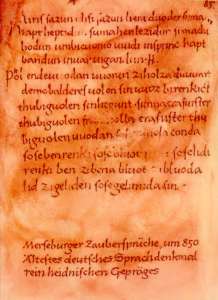 85
sazun idisi sazun hera duoder suma
hapt heptidun sumaherilezidun sumaclu
bodun umbicuonio uuidi insprinc hapt
bandun inuar uigandun H
Phol endeuuodan uuorun ziholza duuuart
demobalderes uolon sin uuoz birenkict
thubiguolen sinhtgunt sunnaerasuister
thubiguolen erasuister thu
biguolen uuodan conda
sosebenrenki soselidi
renki ben zibena bluot zibluoda
lid zigeliden sosegelimida sin
Merseburger Zaubersprüche, um 850
Ältestes deutsches Sprachdenkmal
rein heidnischen Gepräges